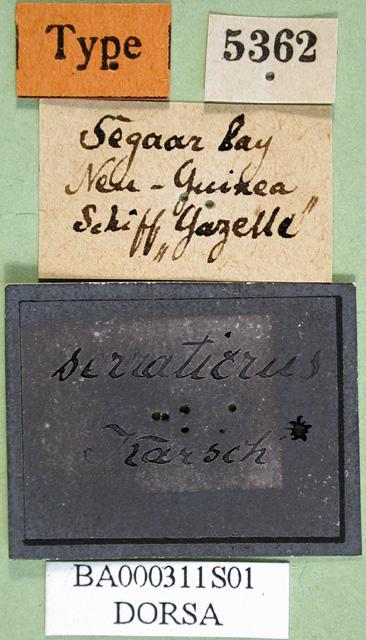 Type
5362
Segaar Bay
Neu-Guinea
Schiff „Gazelle"
serraticrus
Karsch *
BA000311S01
DORSA